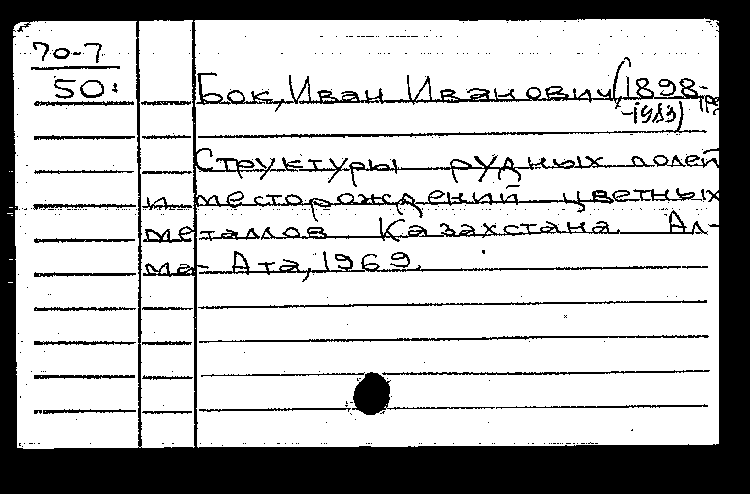 70-7
50:
Бок, Иван Иванович (1898-
-1983)
Структуры рудных полей
и месторождений цветных
металлов Казахстана. Ал-
ма-Ата, 1969.